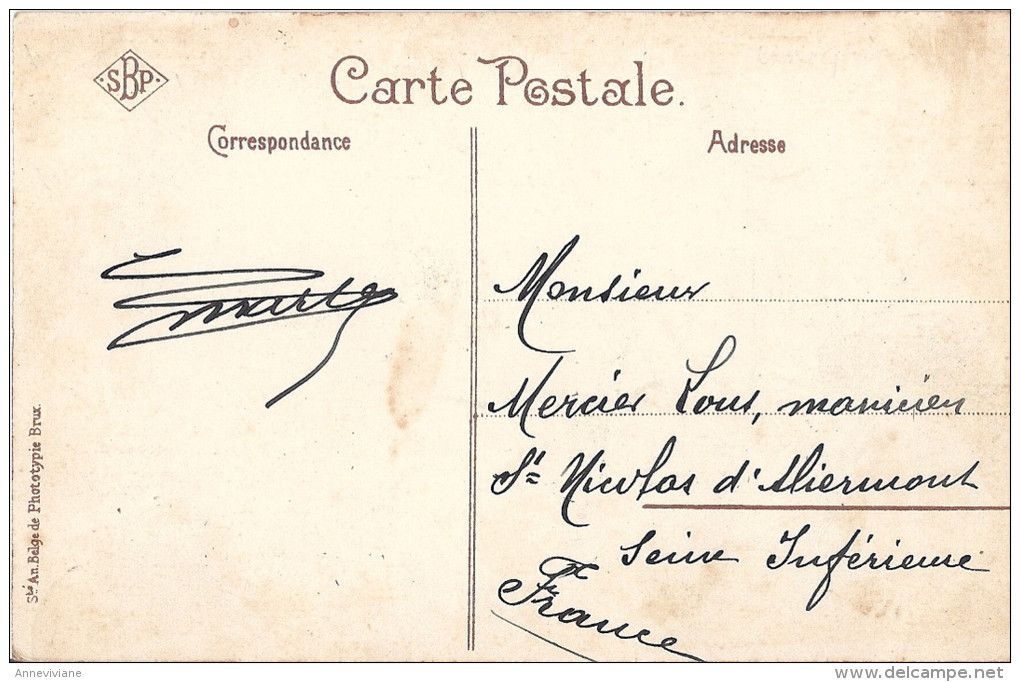 SBP
Carte Postale.
Correspondance
Adresse
Monsieur
Mercier Lous, manicien
St Nicolas d'Aliermont
Seine Inférieure
France
Sté An. Belge de Phototypie Brux.
Anneviviane
www.delcampe.net